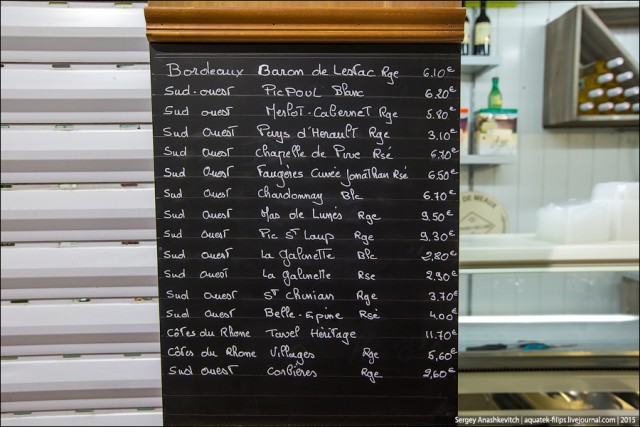 Bordeaux Baron de Lestac Rge 6.10€
Sud-ouest Picpoul Blanc 6.20€
Sud ouest Merlot-Cabernet Rge 5.80€
Sud Ouest Pays d'Herault Rge 3.10€
Sud Ouest Chapelle de Rsé 6.70€
Sud Ouest Faugères Cuvée Jonathan Rsé 6.50€
Sud Ouest Chardonnay Blc 6.70€
Sud Ouest Mas de Lunès Rge 9.50€
Sud Ouest Pic St Loup Rge 9.30€
Sud Ouest La galinette Blc 2.80€
Sud Ouest La galinette Rse 2.90€
Sud Ouest St Chinian Rge 3.70€
Sud Ouest Belle-epine Rsé 4.00€
Côtes du Rhone Tavel Héritage 11.70€
Côtes du Rhone Villages Rge 5,60€
Sud ouest Corbières Rge 2,60€
DE MEAUX
Sergey Anashkevitch | aquatek-filips.livejournal.com | 2015